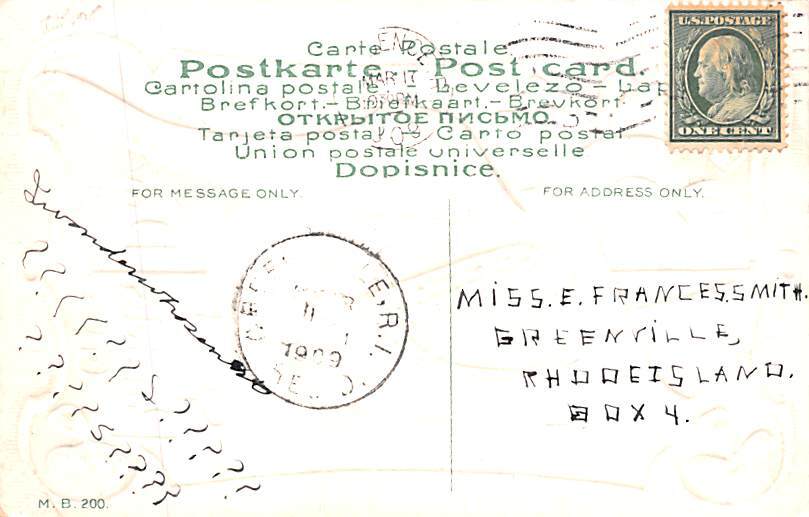 Carte Postale.
Postkarte Post card.
Cartolina postale - Levelező - Lap
Brefkort.- Briefkaart.- Brevkort
ОТКРЫТОЕ ПИСЬМО.
Tarjeta postal - Carto postal
Union postale universelle
Dopisnice.
U.S. POSTAGE
ONE CENT
MAR 17
FOR MESSAGE ONLY.
FOR ADDRESS ONLY.
I wonder who sent it
? ? ? ? ? ? ? ? ? ?
? ? ? ? ? ? ? ? ? ?
R.I.
1909
REC'D
MISS. E. FRANCES. SMITH.
GREENVILLE,
RHODEISLAND.
BOX 4.
M. B. 200.